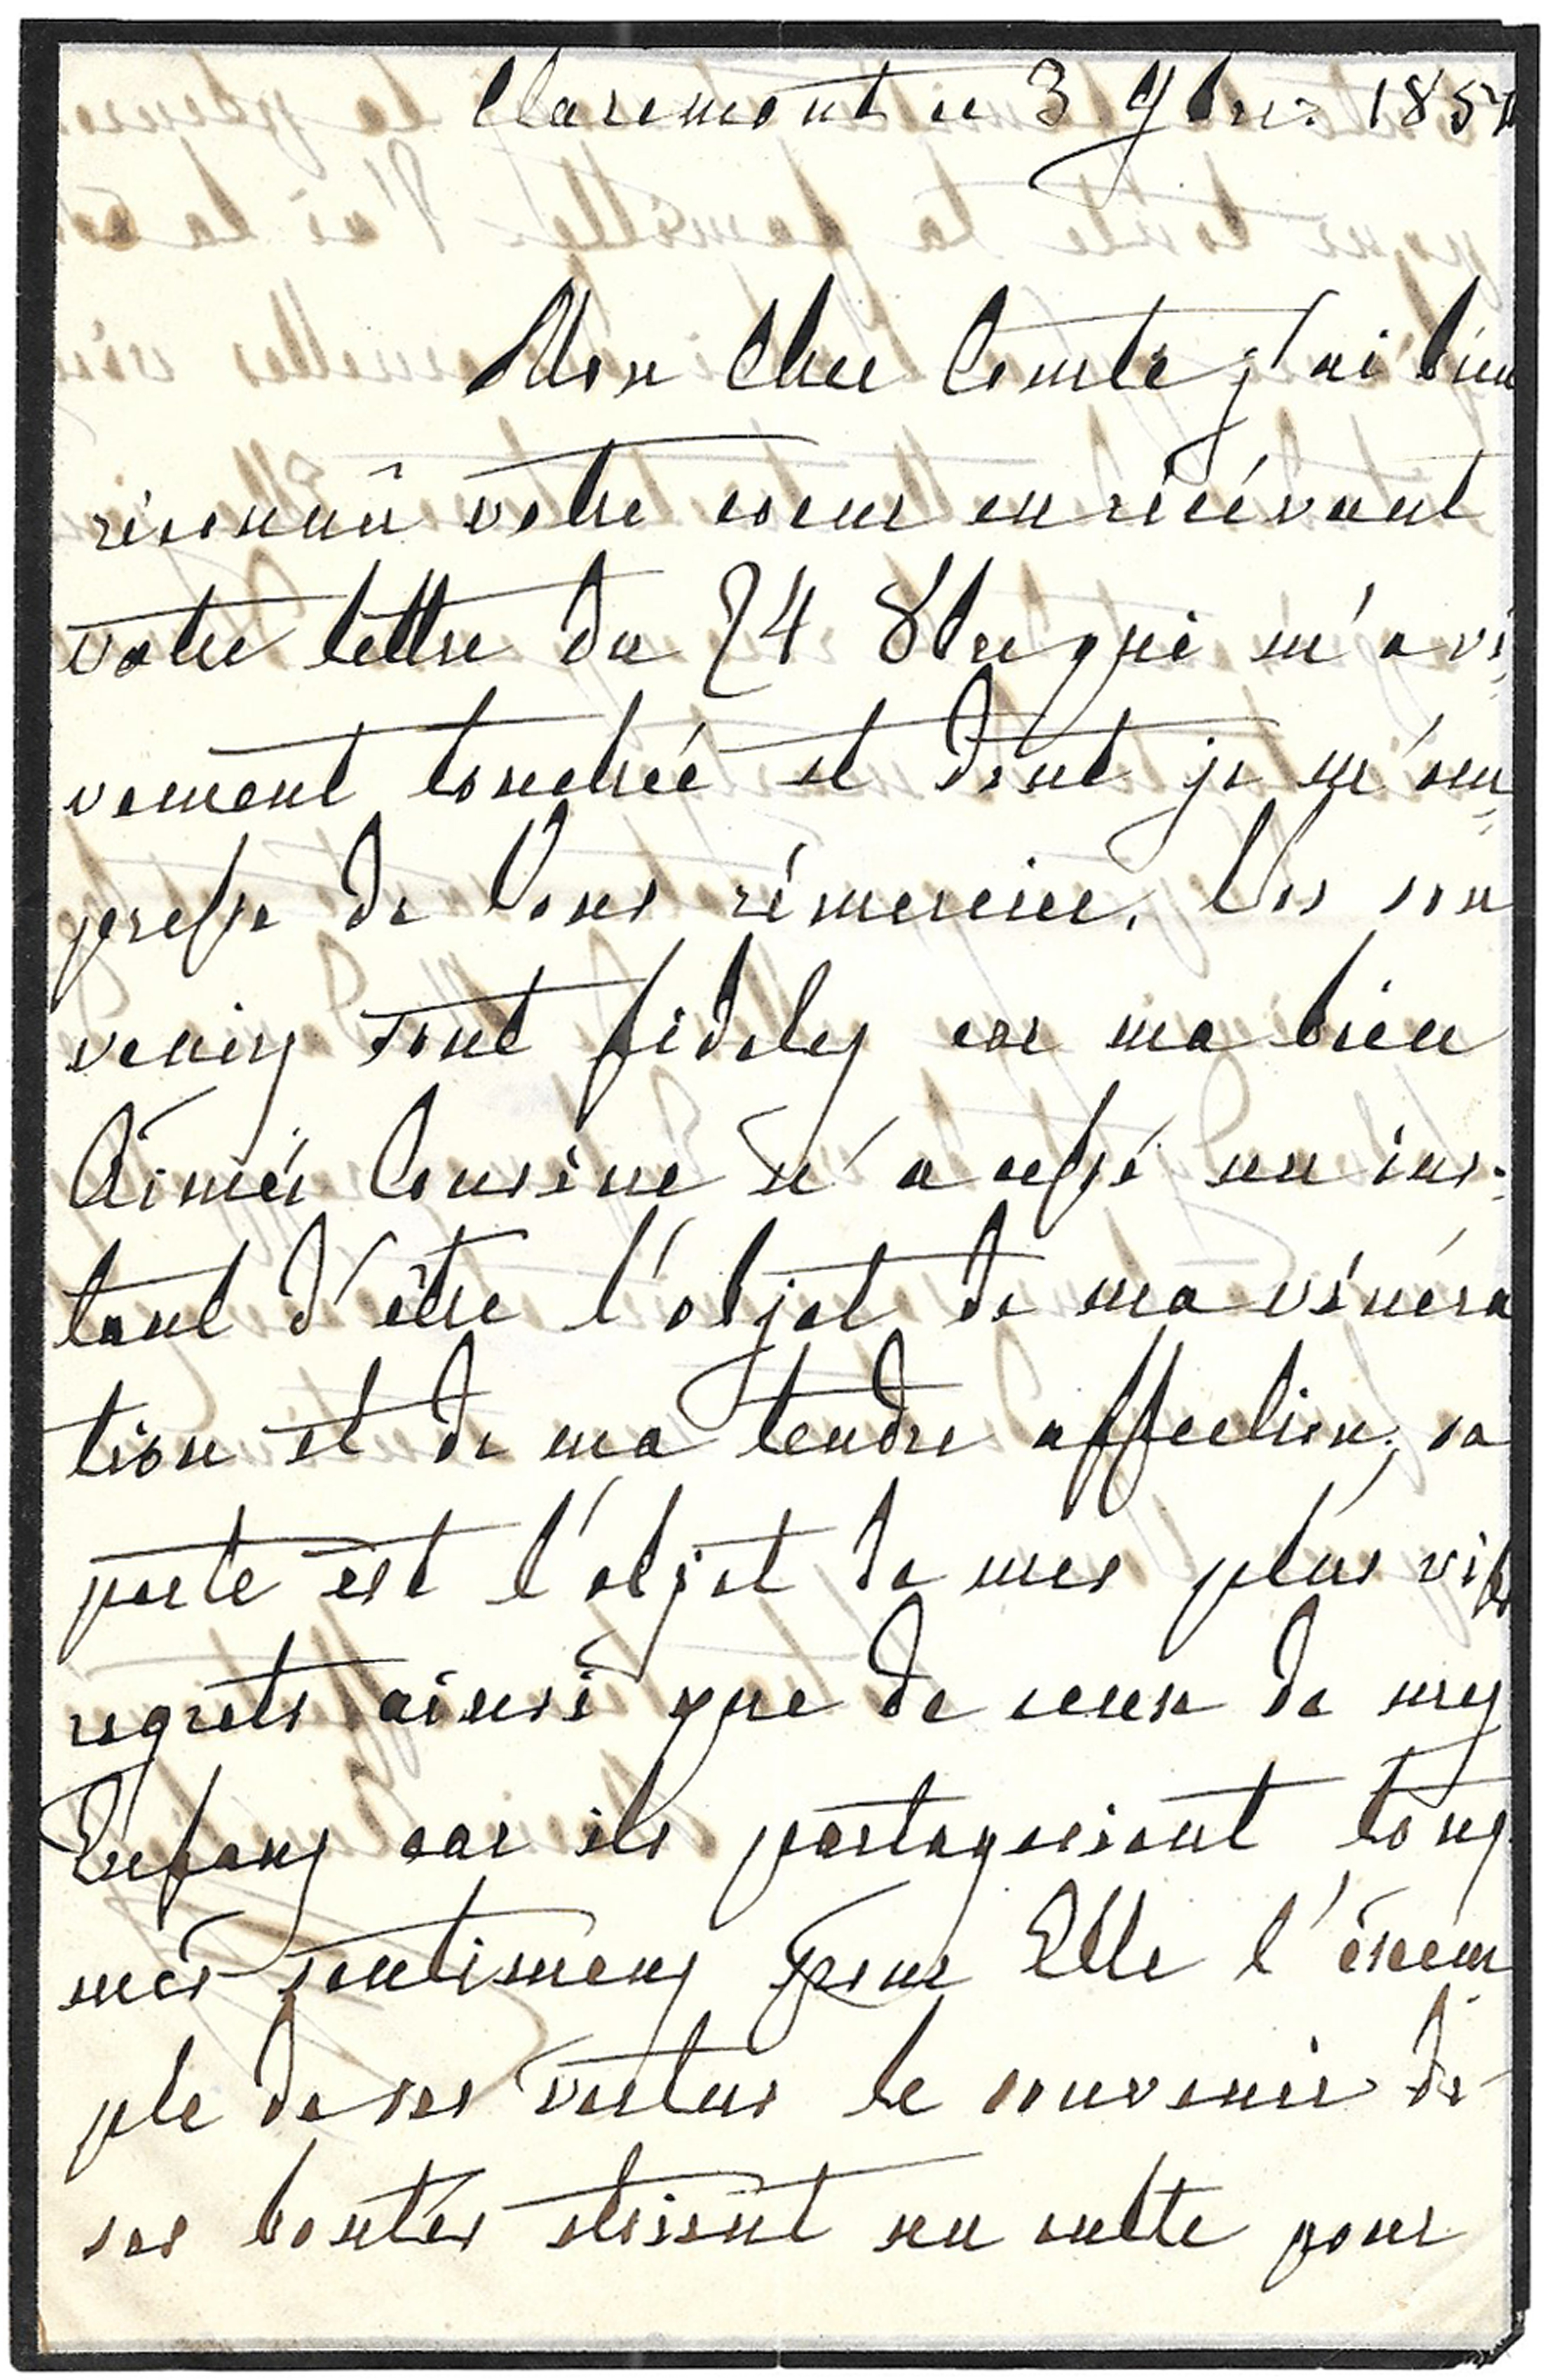 Claremont ce 3 9bre 185
Mon Cher Comte j'ai bien
réconnû votre coeur en récévant
votre lettre du 24 8bre qui m'a vi=
vement touchée et dont je m'em=
presse de Vous rémercier. Vos sou
venirs sont fideles car ma bien
Aimée Cousine n'a cessé un ins=
tant d'être l'objet de ma vénéra
tion et de ma tendre affection; sa
perte est l'objet de mes plus vifs
regrets ainsi que de ceux de mes
Enfans car ils partageoient tous
mes sentimens pour Elle l'exem=
ple de ses vertus le souvenir de
ses bontés etoient un culte pour